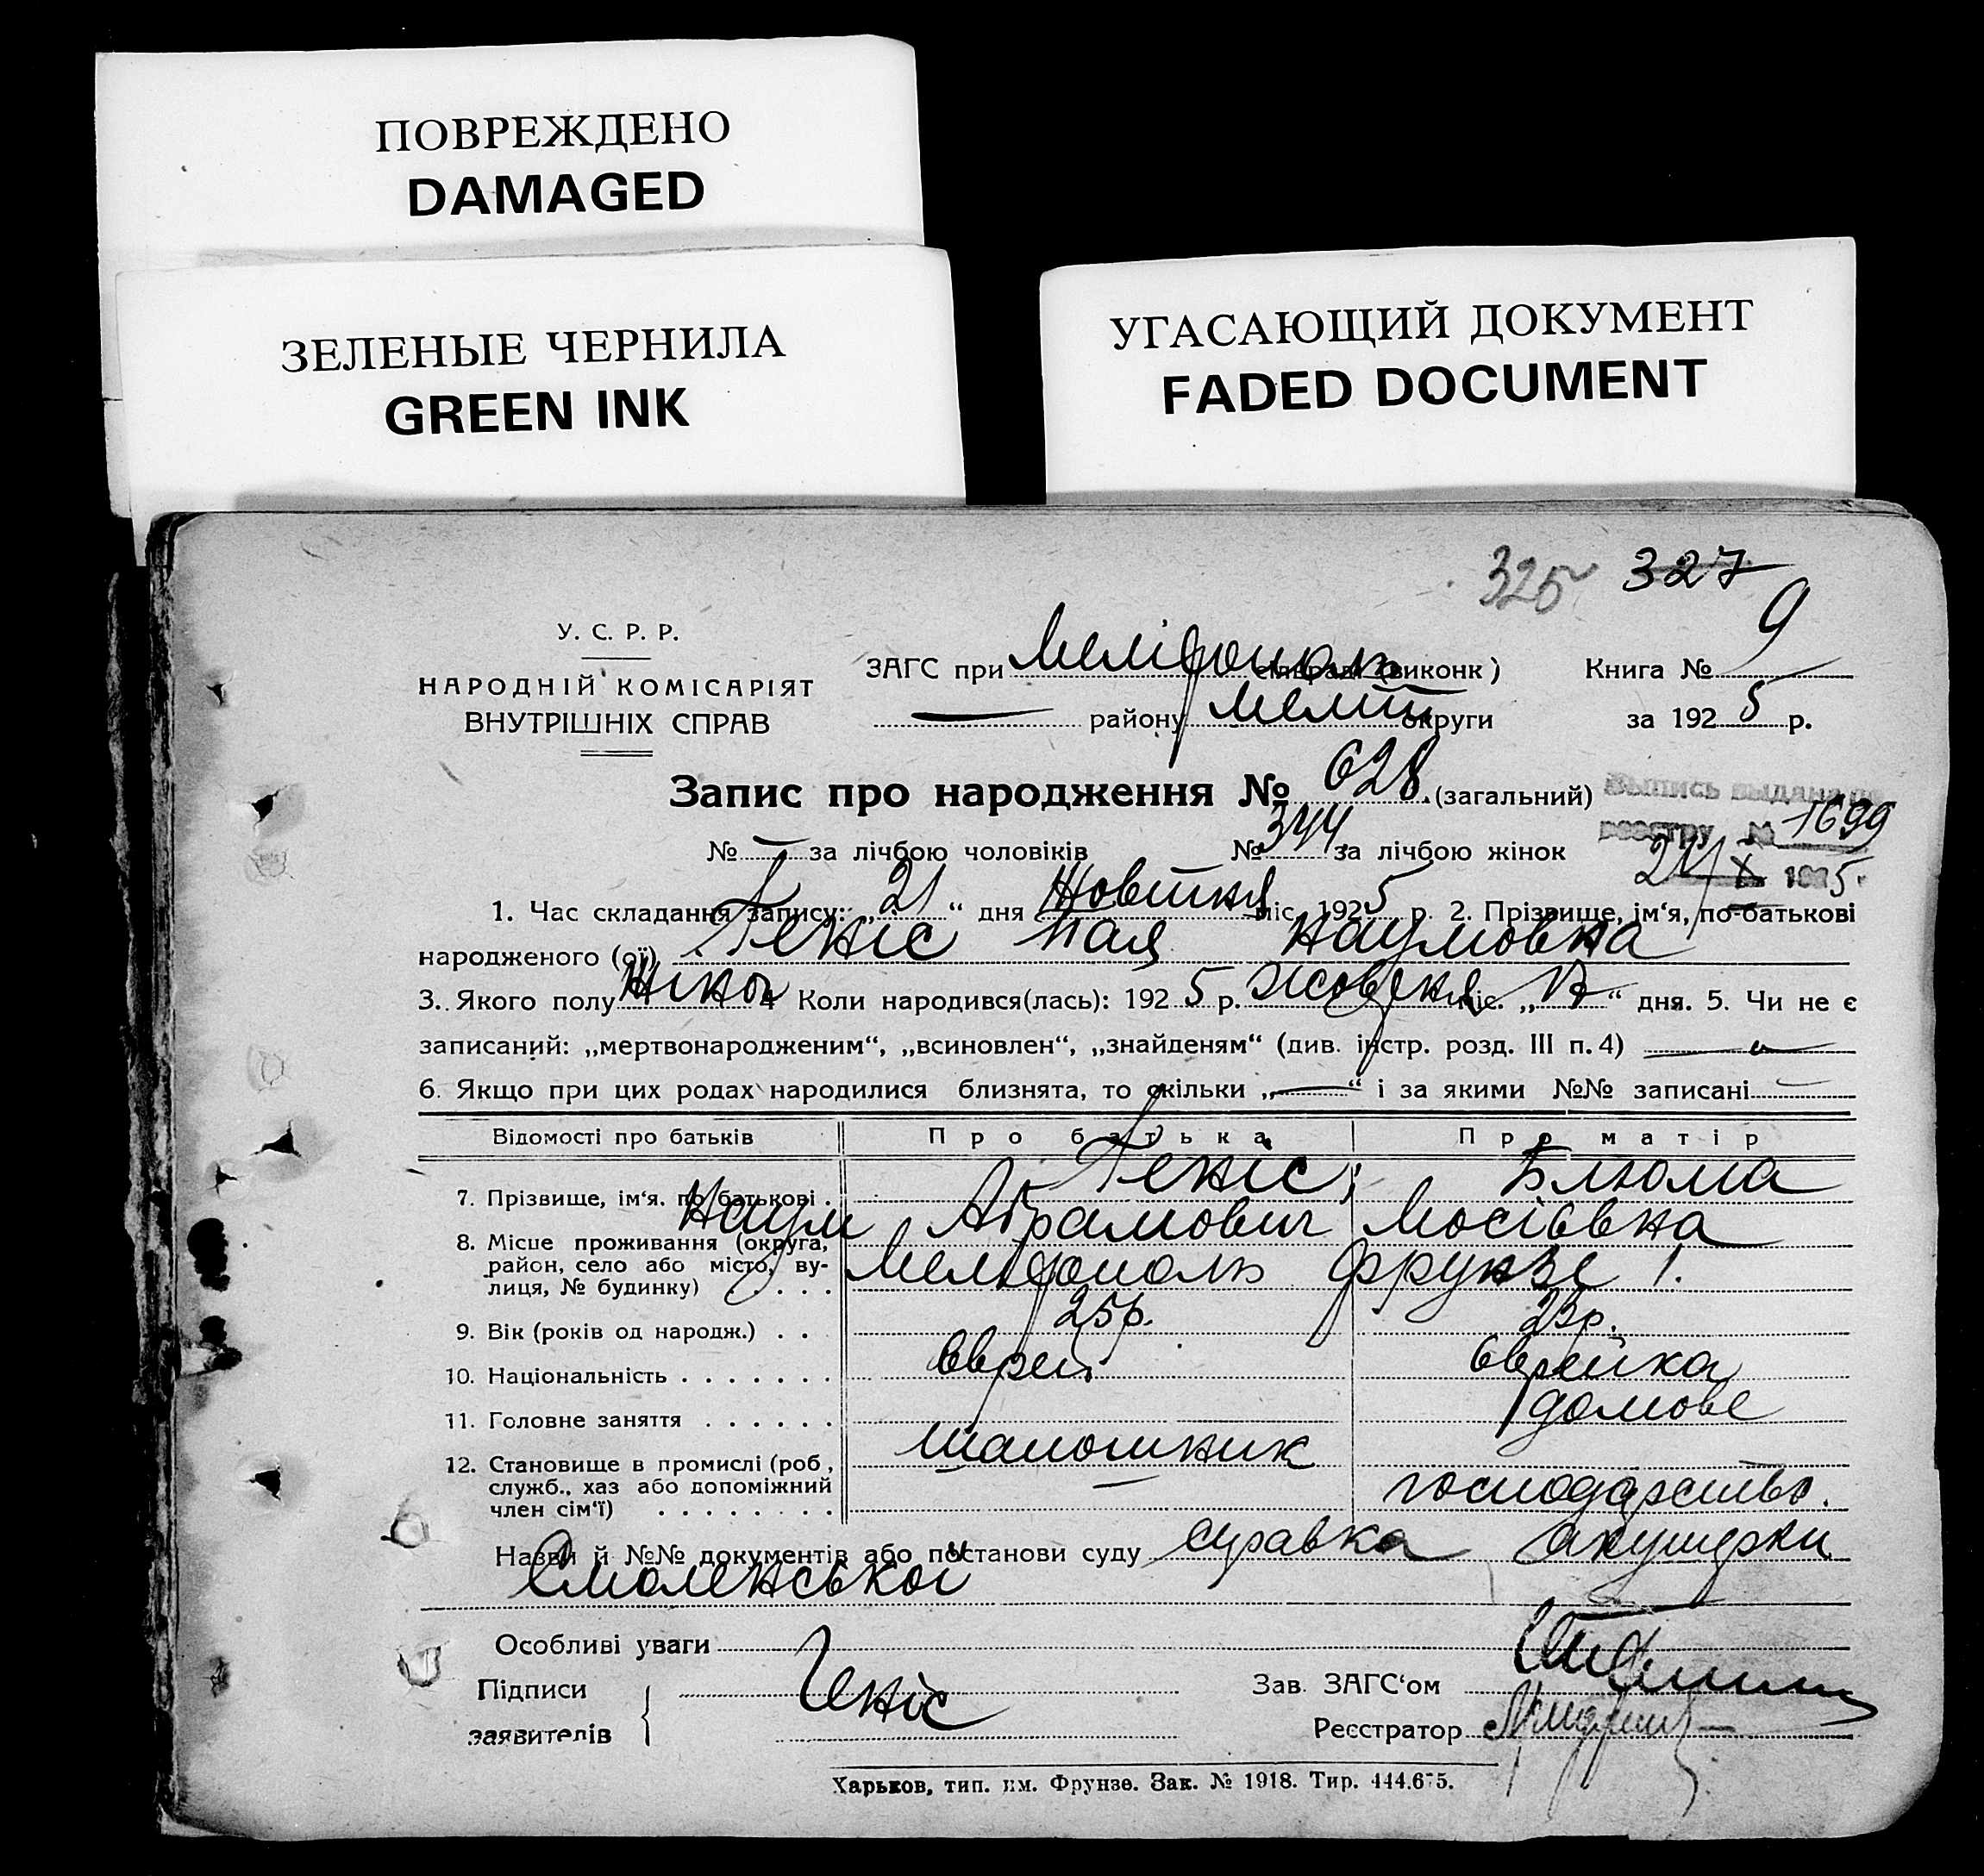 ПОВРЕЖДЕНО
DAMAGED
ЗЕЛЕНЫЕ ЧЕРНИЛА
GREEN INK
УГАСАЮЩИЙ ДОКУМЕНТ
FADED DOCUMENT
325 327
У. С. Р. Р.
НАРОДНІЙ КОМІСАРІЯТ
ВНУТРІШНІХ СПРАВ
ЗАГС при сільраді (виконк) Книга № 9
району Меліт округи за 1925 р.
Запис про народження № 628 (загальний)
Выпись выдана по
реестру № 1699
24/X 1925.
№ — за лічбою чоловіків № 344 за лічбою жінок
1. Час складання запису: „21“ дня Жовтня міс. 1925 р. 2. Прізвище, ім‘я, по-батькові
народженого (ої) Геніс Наумовна
3. Якого полу жіноч 4 Коли народився(лась): 1925 р. Жовтня міс. „ “ дня. 5. Чи не є
записаний: „мертвонародженим“, „всиновлен“, „знайденям“ (див. інстр. розд. III п. 4) —
6. Якщо при цих родах народилися близнята, то скільки „—“ і за якими №№ записані —
Відомості про батьків Про батька Про матір
7. Прізвище, ім‘я. по батькові . Геніс, Блюма
Наум Абрамович Мосіевна
8. Місце проживання (округа, район, село або місто, вулиця, № будинку) . . . . Мелітополь Фрунзе 1.
9. Вік (років од народж.) . . 25р. 23р.
10. Національність . . . . . . . Еврей Еврейка
11. Головне заняття . . . . . . домове
шапошник
12. Становище в промислі (роб, служб., хаз або допоміжний член сім‘ї) . . . . . . . . — господарство.
Назви й №№ документів або постанови суду справка акушерки
Смоленської
Особливі уваги
Підписи заявителів Геніс
Зав. ЗАГС‘ом
Реєстратор
Харьков, тип. им. Фрунзе. Зак. № 1918. Тир. 444.675.